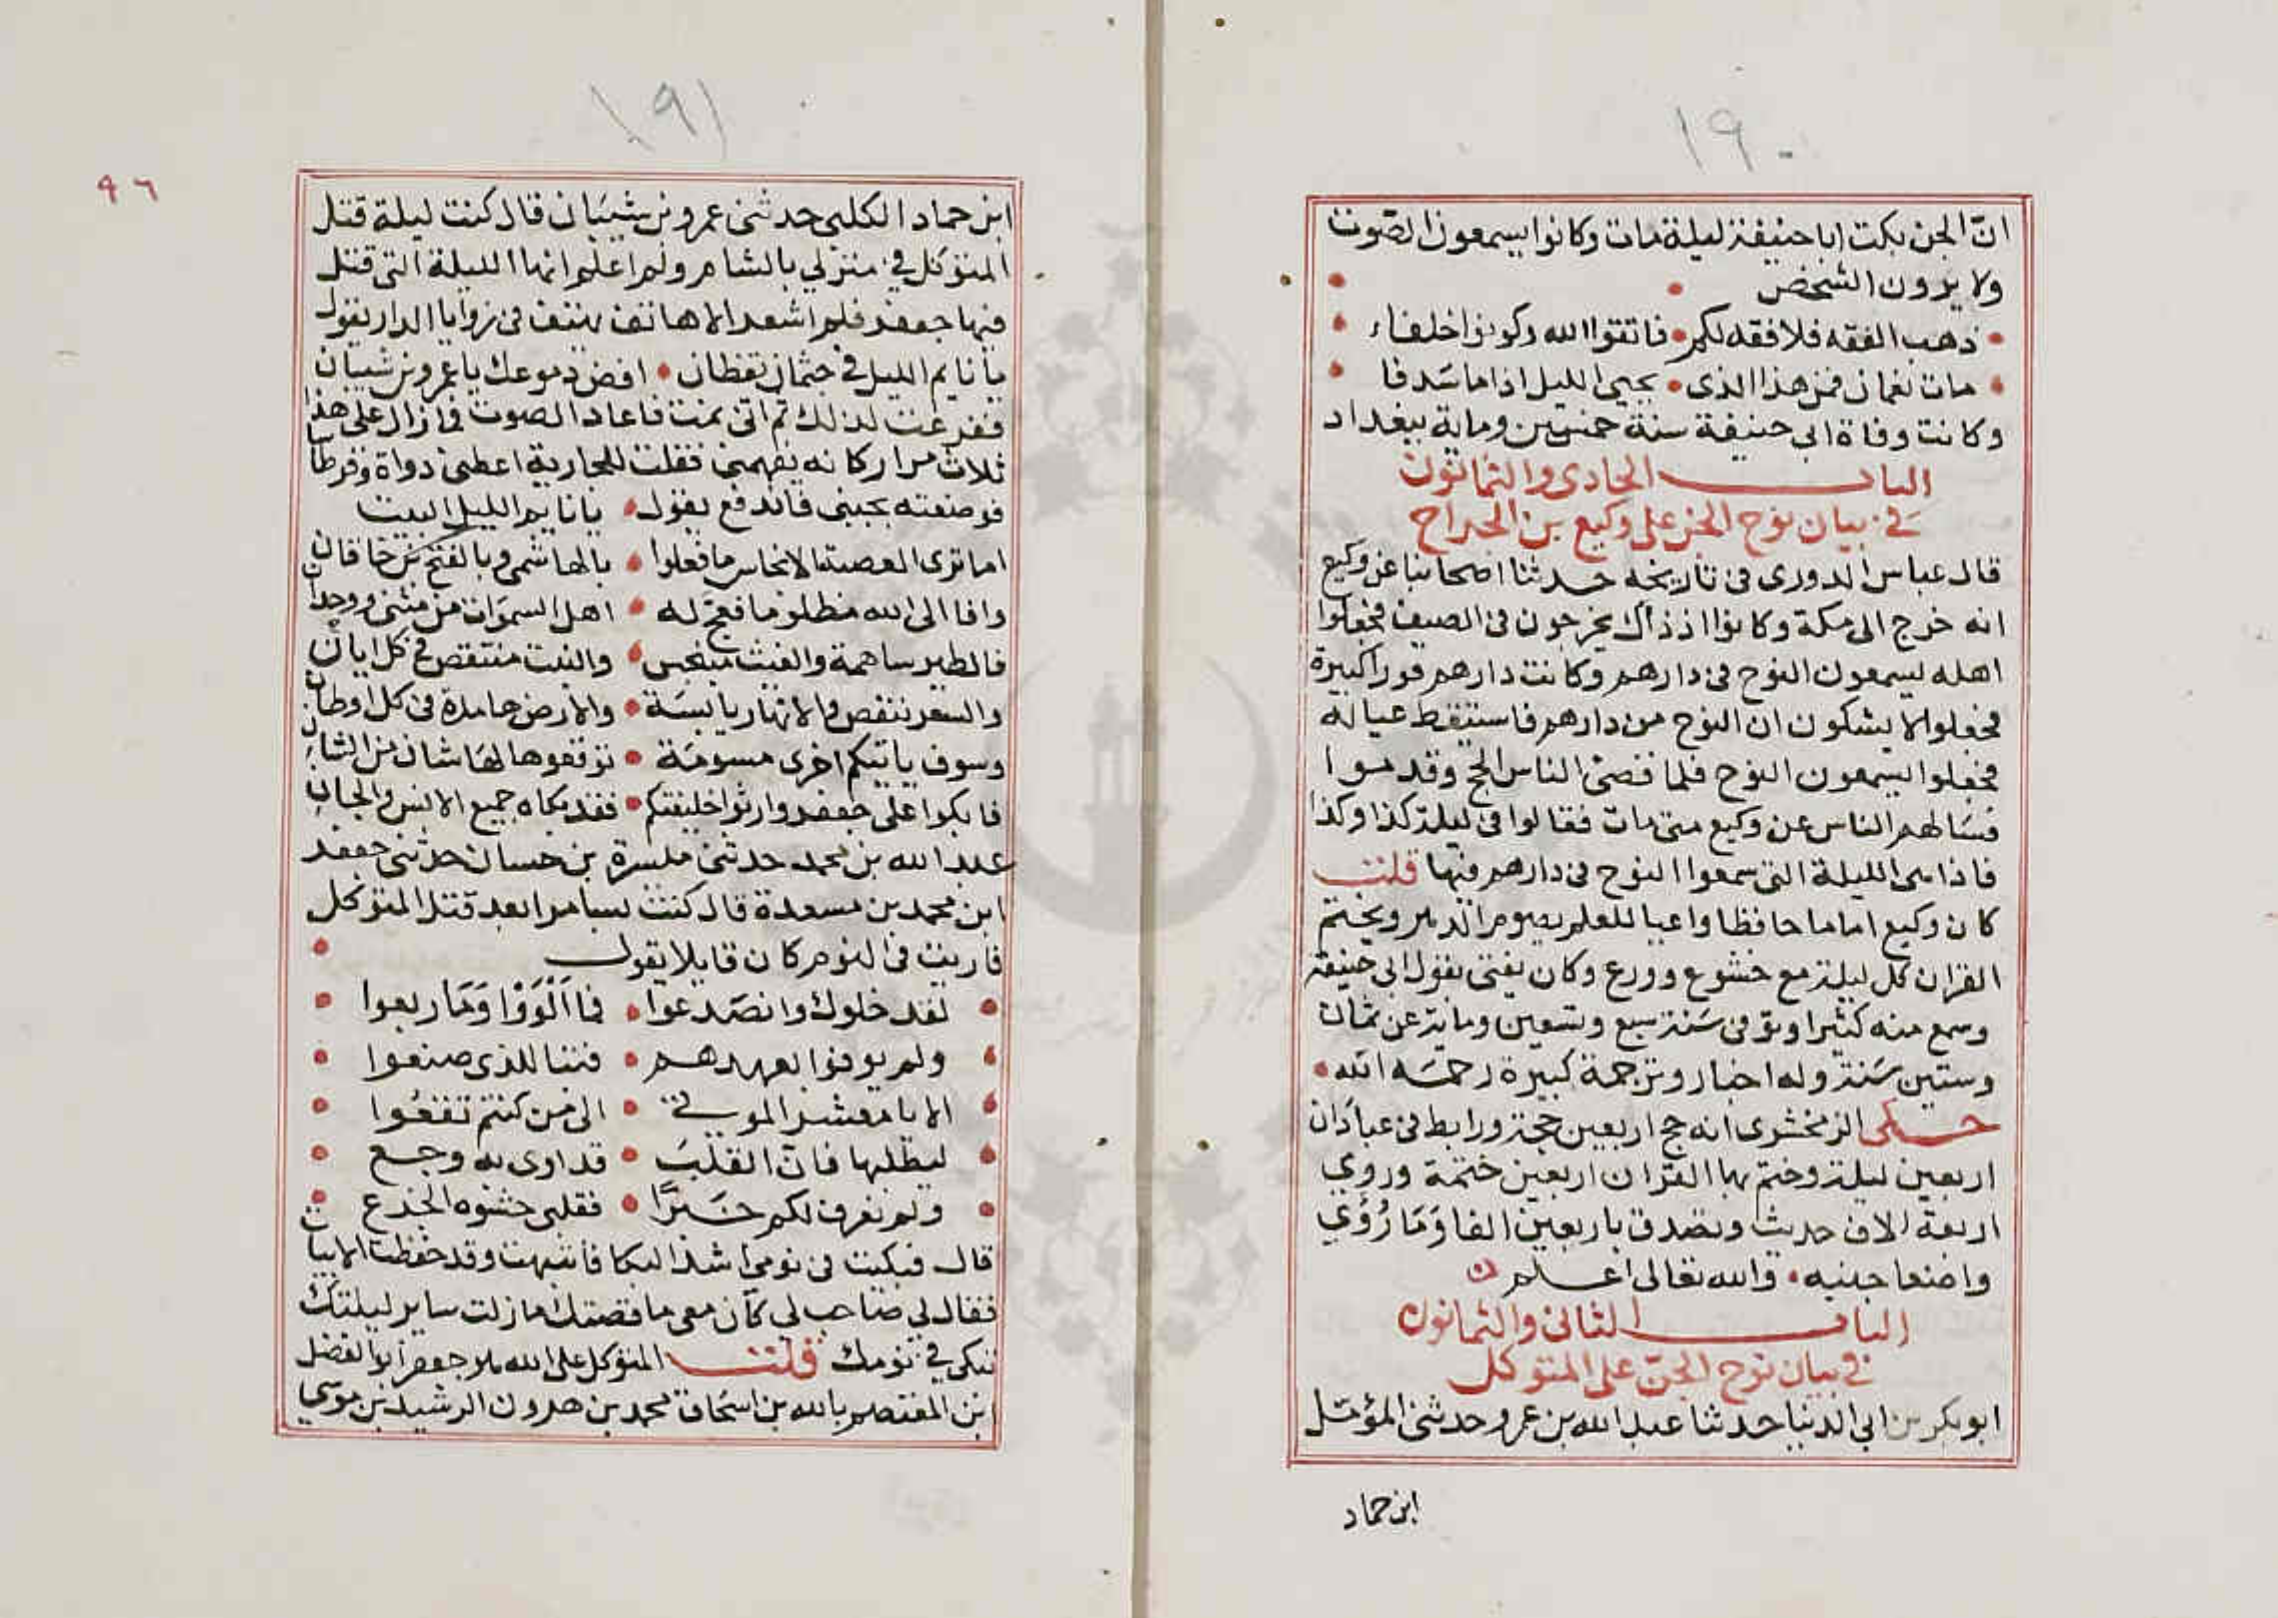 ١٩٠
انّ الجن بكت ابا حنيفة ليلة مات وكانوا يسمعون الصوت
ولا يرون الشخص
ذهب الفقه فلا فقه لكم • فاتقوا الله وكونوا خلفاء
مات نعمان فمن هذا الذى • يحيى الليل اذا ما سدفا
وكانت وفاة ابي حنيفة سنة خمسين وماية ببغداد
الباب الحادى والثمانون
في بيان نوح الجن على وكيع بن الجراح
قال عباس الدورى فى تاريخه حدثنا اصحابنا عن وكيع
انه خرج الى مكة وكانوا اذ ذاك يخرجون فى الصيف فجعلوا
اهله يسمعون النوح فى دارهم وكانت دارهم قورا كبيرة
فجعلوا لا يشكون ان النوح من دارهم فاستيقظ عياله
فجعلوا يسمعون النوح فلما قضى الناس الحج وقدموا
فسالهم الناس عن وكيع متى مات فقالوا فى ليلة كذا وكذا
فاذا هى الليلة التى سمعوا النوح فى دارهم فيها قلت
كان وكيع اماما حافظا واعيا للعلم يصوم الدهر ويختم
القران كل ليلة مع خشوع وورع وكان يفتى بقول ابى حنيفة
وسمع منه كثيرا وتوفى سنة سبع وتسعين وماية عن ثمان
وستين سنة وله اخبار وترجمة كبيرة رحمه الله •
حكى الزمخشرى انه حج اربعين حجة ورابط فى عبادان
اربعين ليلة وختم بها القران اربعين ختمة وروي
اربعة الاف حديث وتصدق باربعين الفا وَمَا رُؤي
واضعا جنبه • والله تعالى اعلم
الباب الثانى والثمانون
في بيان نوح الجنّ على المتوكل
ابو بكر بن ابي الدنيا حدثنا عبد الله بن عمرو حدثنى المؤمل
ابن حماد
١٩١
٩٦
ابن حماد الكلبى حدثنى عمرو بن شيبان قال كنت ليلة قتل
المتوكل في منزلي بالشام ولم اعلم انها الليلة التى قتل
فيها جعفر فلم اشعر الا هاتف يهتف فى زوايا الدار يقول
يا نايم الليل في جثمان يقظان • افض دموعك يا عمرو بن شيبان
ففزعت لذلك ثم انى نمت فاعاد الصوت فما زال على هذا
ثلاث مرار كانه يفهمنى فقلت للجارية اعطنى دواة وقرطاسا
فوضعته بجنبى فاندفع يقول • يا نايم الليل البيت
اما ترى العصبة الانجاس ما فعلوا • بالهاشمى وبالفتح بن خاقان
وافا الى الله مظلوما فعج له • اهل السموات من مثنى ووحدان
فالطير ساهمة والغيث منحبس • والنبت منتقص في كل ابان
والسعر ينتقص والانهار يابسة • والارض هامدة فى كل اوطان
وسوف ياتيكم اخرى مسومة • توقعوها لها شان من الشان
فابكوا على جعفر وارثوا خليفتكم • فقد بكاه جميع الانس والجان
عبد الله بن محمد حدثنى ميسرة بن حسان حدثنى جعفر
ابن محمد بن مسعدة قال كنت بسامرا بعد قتل المتوكل
فاريت فى النوم كان قايلا يقول
لقد خلوك وانصدعوا • فما اَلْوَوْا وَمَا ربعوا
ولم يوفوا بعهدهم • فتبا للذى صنعوا
الا يا معشر الموتي • الى من كنتم تقعُوا
ليطلبها فان القلبَ • قد اودى به وجع
ولم نعرف لكم خبرًا • فقلبى حشوه الجزع
قال فبكيت فى نومى اشد البكا فانتبهت وقد حفظت الابيات
فقال لي صاحب لي كان معى ما قصتك ما زلت ساير ليلتك
تبكى في نومك قلت المتوكل على الله هو جعفر ابو الفضل
ابن المعتصم بالله بن اسحاق محمد بن هرون الرشيد بن موسي